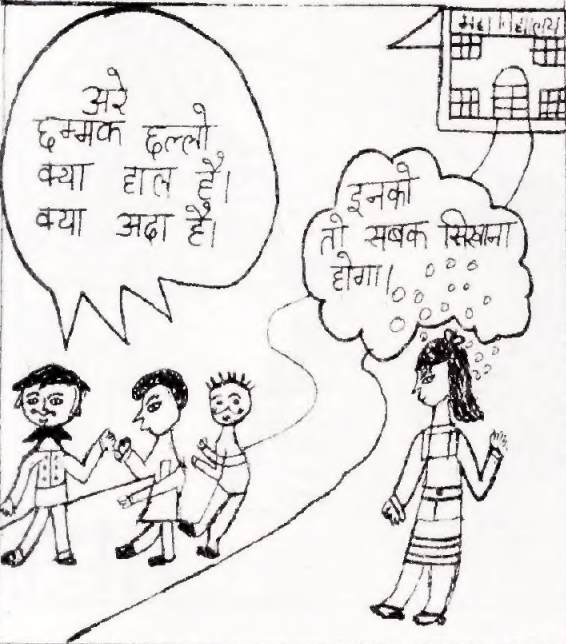 महा विद्यालय
अरे
छम्मक छल्लो
क्या हाल है।
क्या अदा है।
इनको
तो सबक सिखाना
होगा।